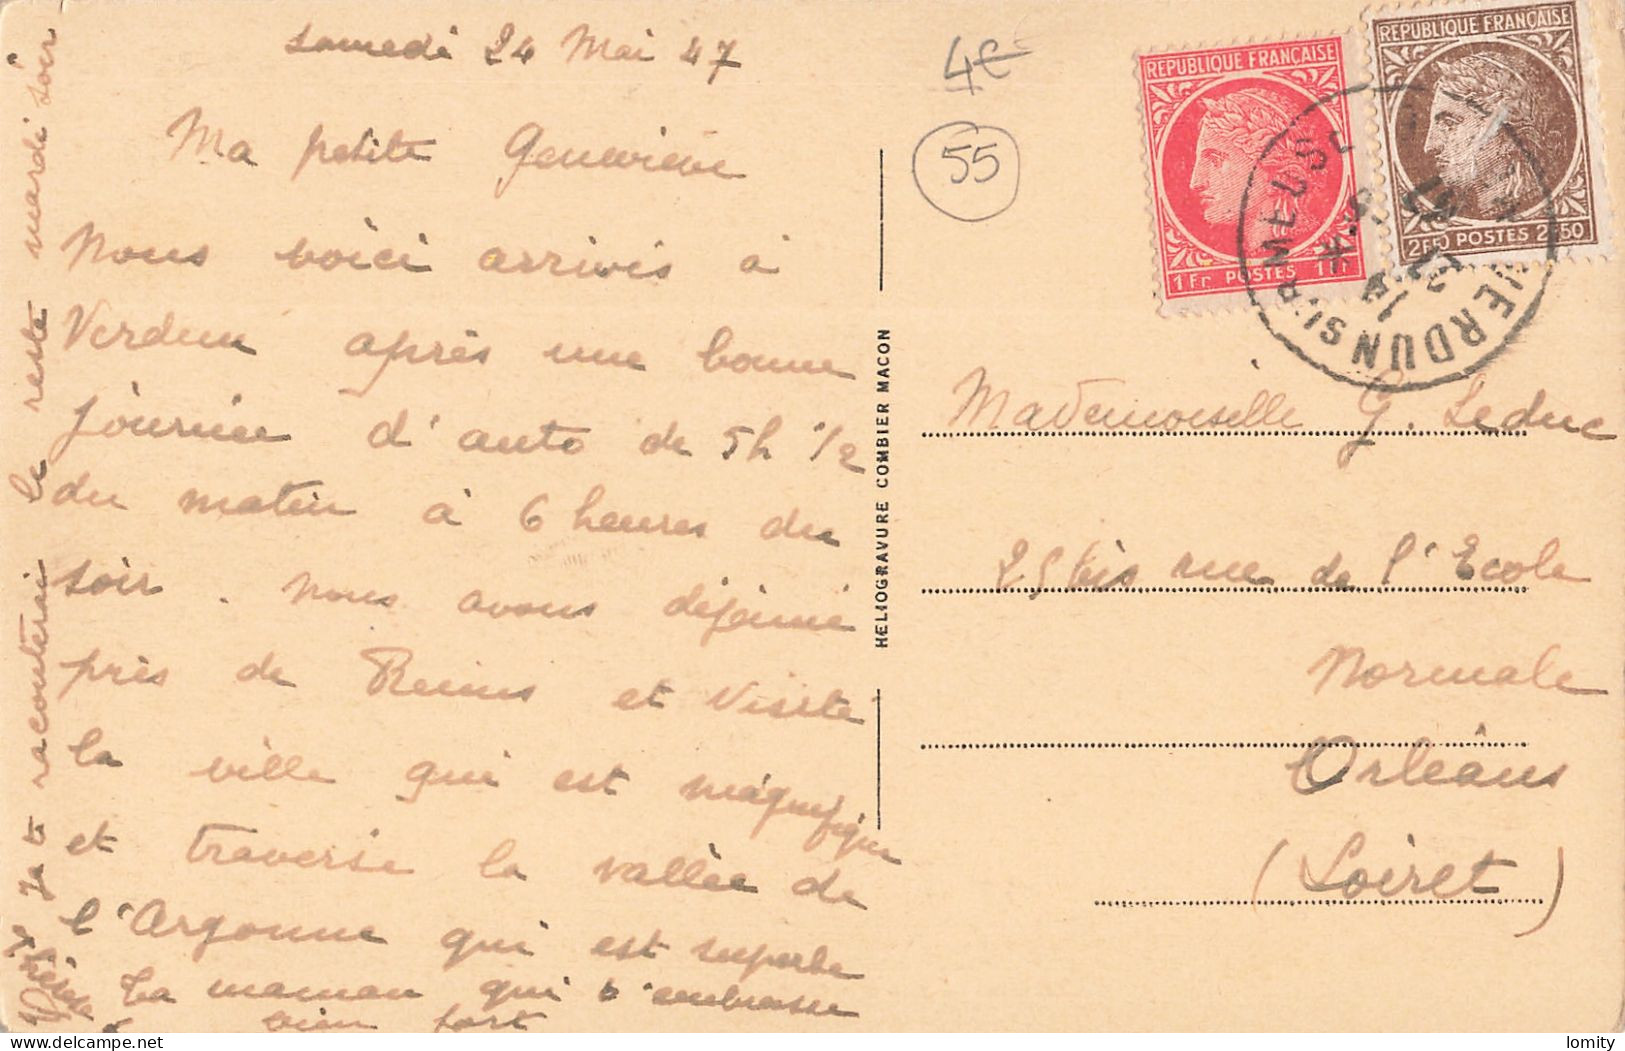 samedi 24 Mai 47
Ma petite Geneviève
Nous voici arrivés à
Verdun après une bonne
journée d'auto de 5h 1/2
du matin à 6 heures du
soir. nous avons déjeuné
près de Reims et visité
la ville qui est magnifique
et traversé la vallée de
l'Argonne qui est superbe
Ta maman qui t'embrasse
bien fort
Je te raconterai le reste mardi soir
4€
55
REPUBLIQUE FRANÇAISE
1Fr POSTES 1Fr
REPUBLIQUE FRANÇAISE
2F50 POSTES 2F50
VERDUN SUR MEUSE
HELIOGRAVURE COMBIER MACON
Mademoiselle G. Leduc
25 bis rue de l'Ecole
Normale
Orléans
(Loiret)
lomity